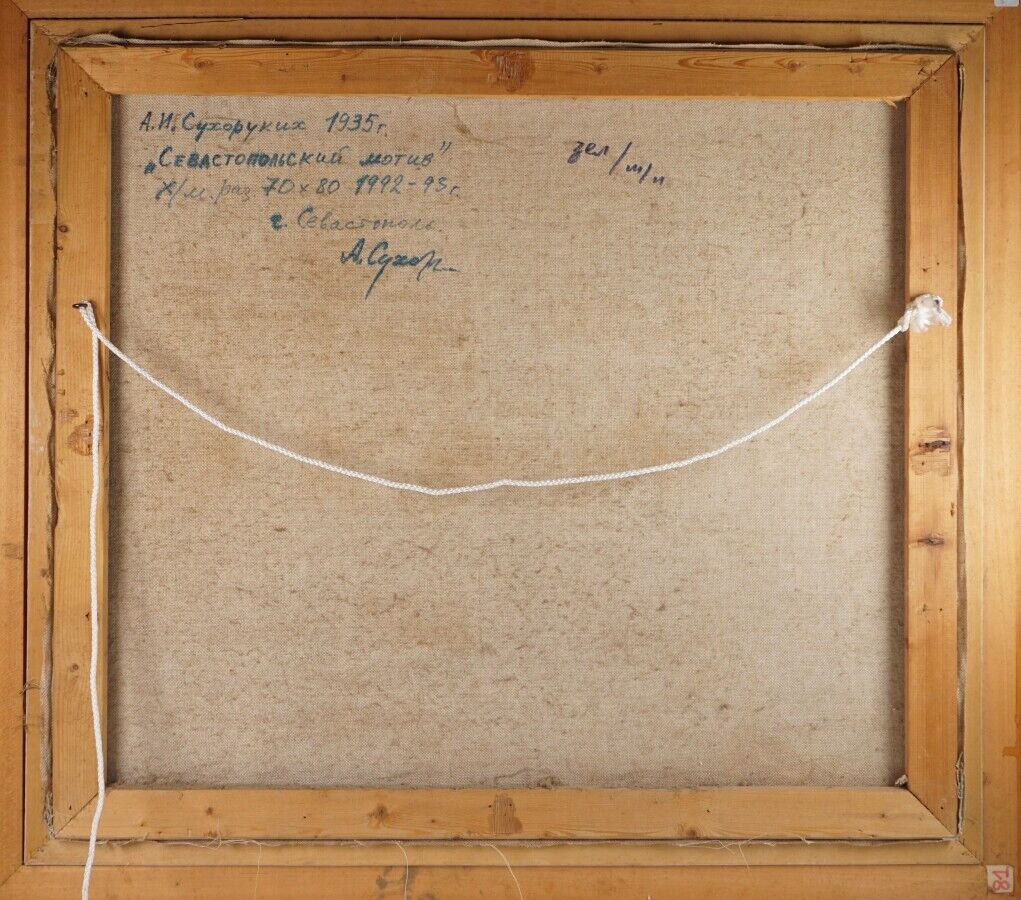 А.И. Сухоруких 1935г.
„Севастопольский мотив"
Х/м. раз 70 х 80 1992-93г.
г. Севастополь
А.Сухор
зел/м/п
81